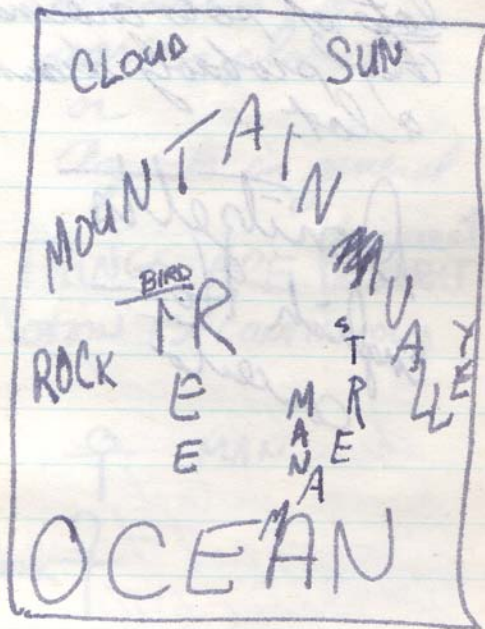 CLOUD SUN
MOUNTAIN
VALLEY
BIRD
TREE
ROCK
STREAM
MAN
OCEAN